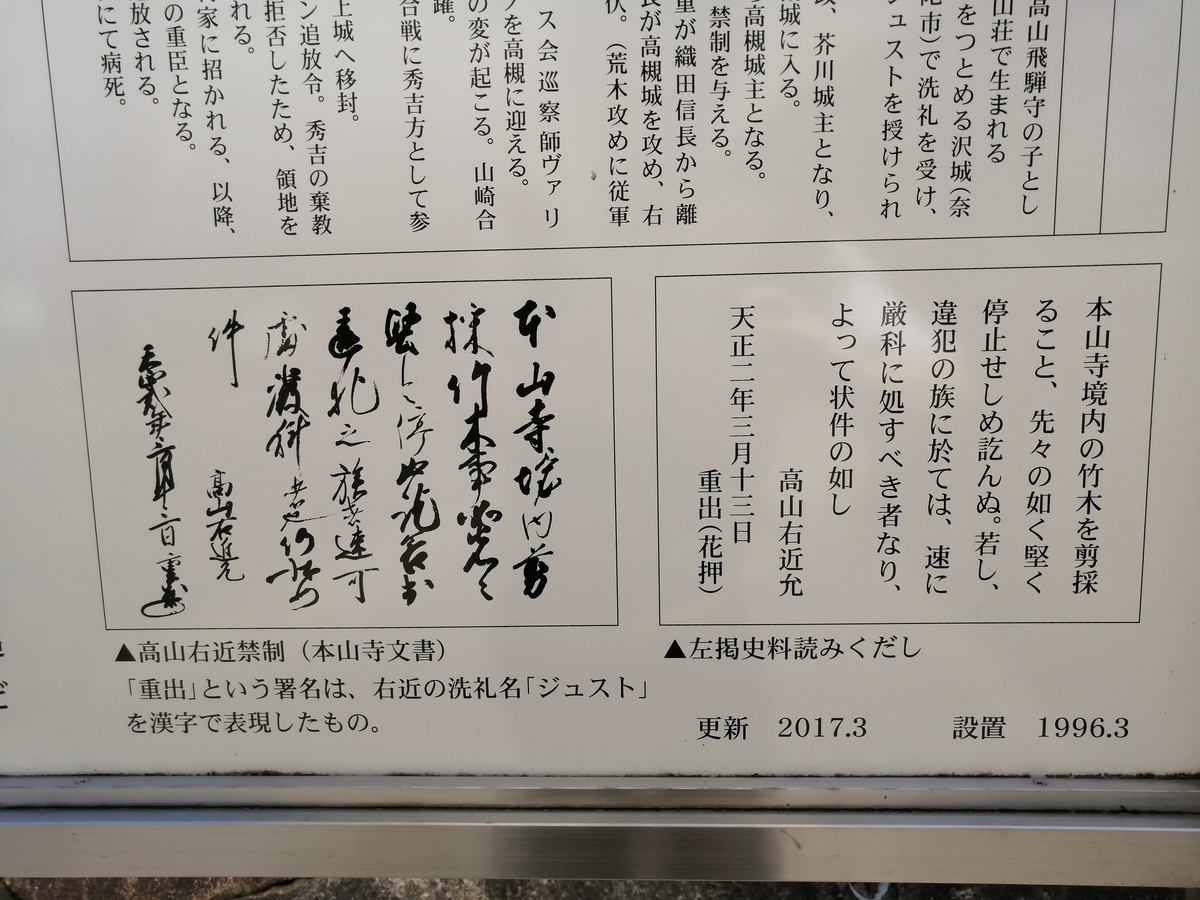 高山飛騨守の子とし
山荘で生まれる
をつとめる沢城(奈
市)で洗礼を受け、
ジュストを授けられ
芥川城主となり、
城に入る。
高槻城主となる。
禁制を与える。
重が織田信長から離
長が高槻城を攻め、右
伏。(荒木攻めに従軍
ス会巡察師ヴァリ
を高槻に迎える。
の変が起こる。山崎合
合戦に秀吉方として参
躍。
上城へ移封。
ン追放令。秀吉の棄教
拒否したため、領地を
れる。
家に招かれる、以降、
の重臣となる。
放される。
にて病死。
本山寺境内の竹木を剪採
ること、先々の如く堅く
停止せしめ訖んぬ。若し、
違犯の族に於ては、速に
厳科に処すべき者なり、
よって状件の如し
高山右近允
天正二年三月十三日
重出(花押)
▲左掲史料読みくだし
本山寺境内剪
採竹木事
件
高山右近允
▲高山右近禁制(本山寺文書)
「重出」という署名は、右近の洗礼名「ジュスト」
を漢字で表現したもの。
更新 2017.3 設置 1996.3